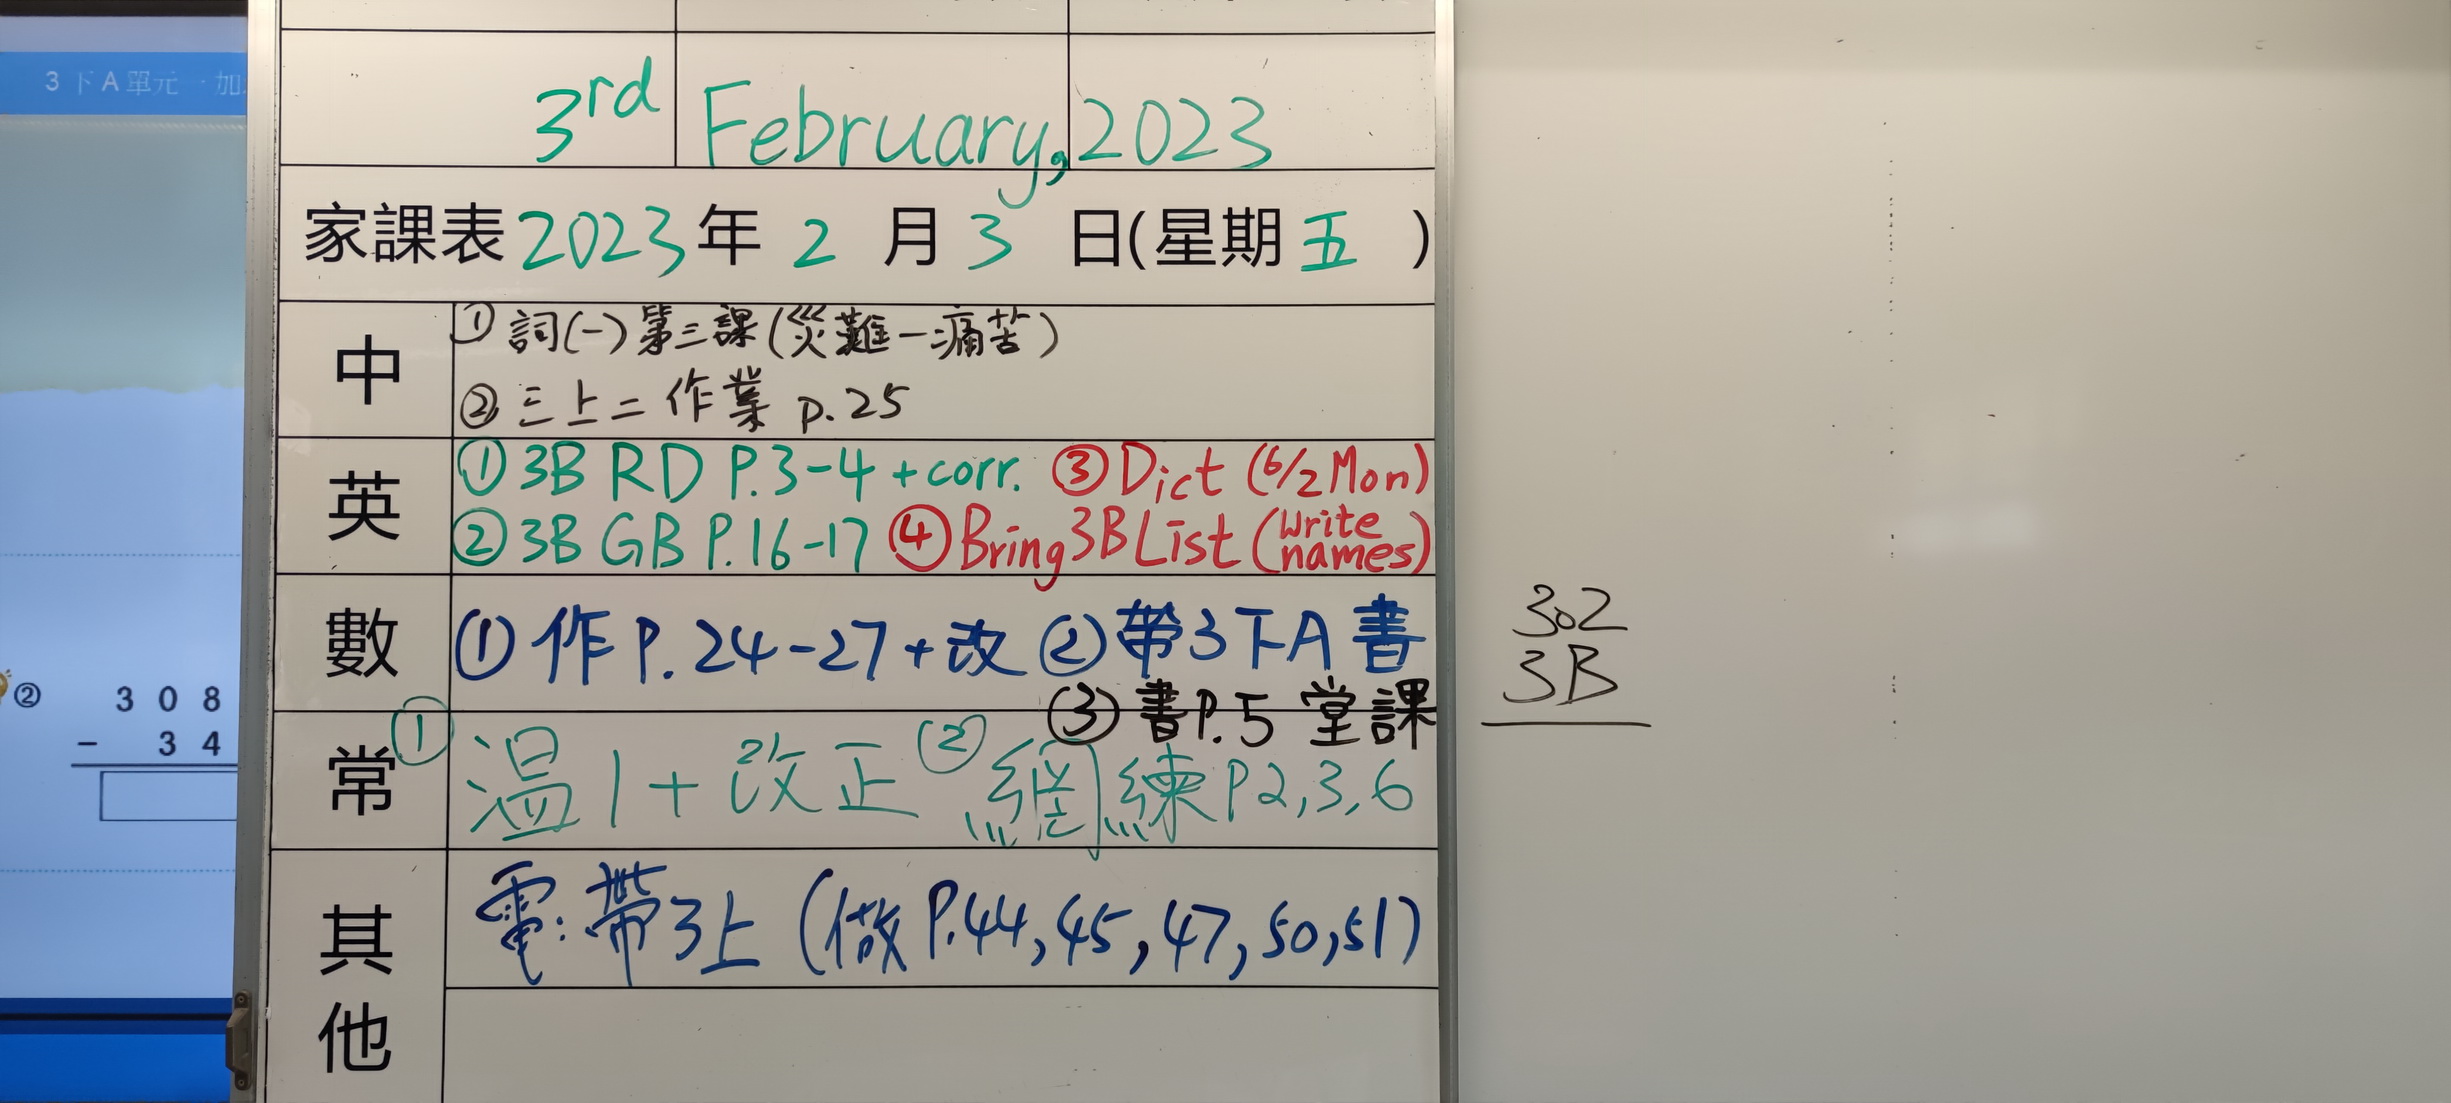 3下A單元一加
② 308
- 34
3rd February, 2023
家課表 2023年 2 月 3 日(星期 五 )
中
① 詞(一) 第三課 (災難—痛苦)
② 三上二 作業 p.25
英
① 3B RD P.3-4 + corr. ③ Dict (6/2 Mon)
② 3B GB P.16-17 ④ Bring 3B List (Write names)
數
① 作 P.24-27 + 改 ② 帶3下A 書
③ 書P.5 堂課
常
① 溫1 + 改正 ② 網練 P2,3,6
其他
電: 帶3上 (做 P.44,45,47,50,51)
302
3B